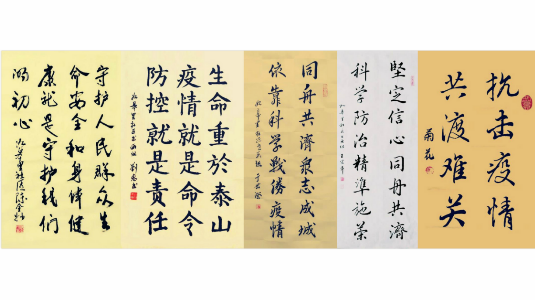 抗击疫情
共渡难关
菊花
堅定信心同舟共濟
科学防治精準施策
同舟共濟衆志成城
依靠科学戰勝疫情
生命重於泰山
疫情就是命令
防控就是責任
守护人民群众生
命安全和身体健
康就是守护我们
的初心